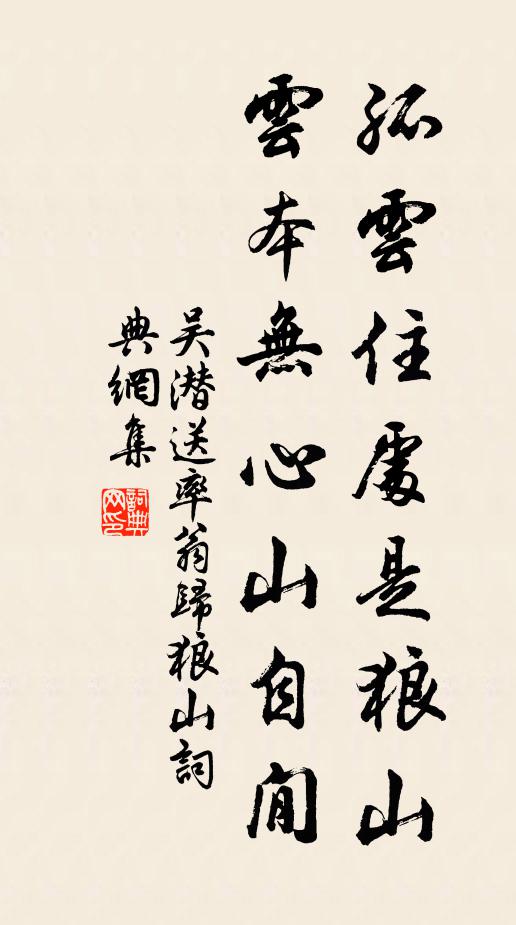 孤雲住處是狼山
雲本無心山自閒
吴潜送率翁歸狼山詞
典網集
詞典
网印